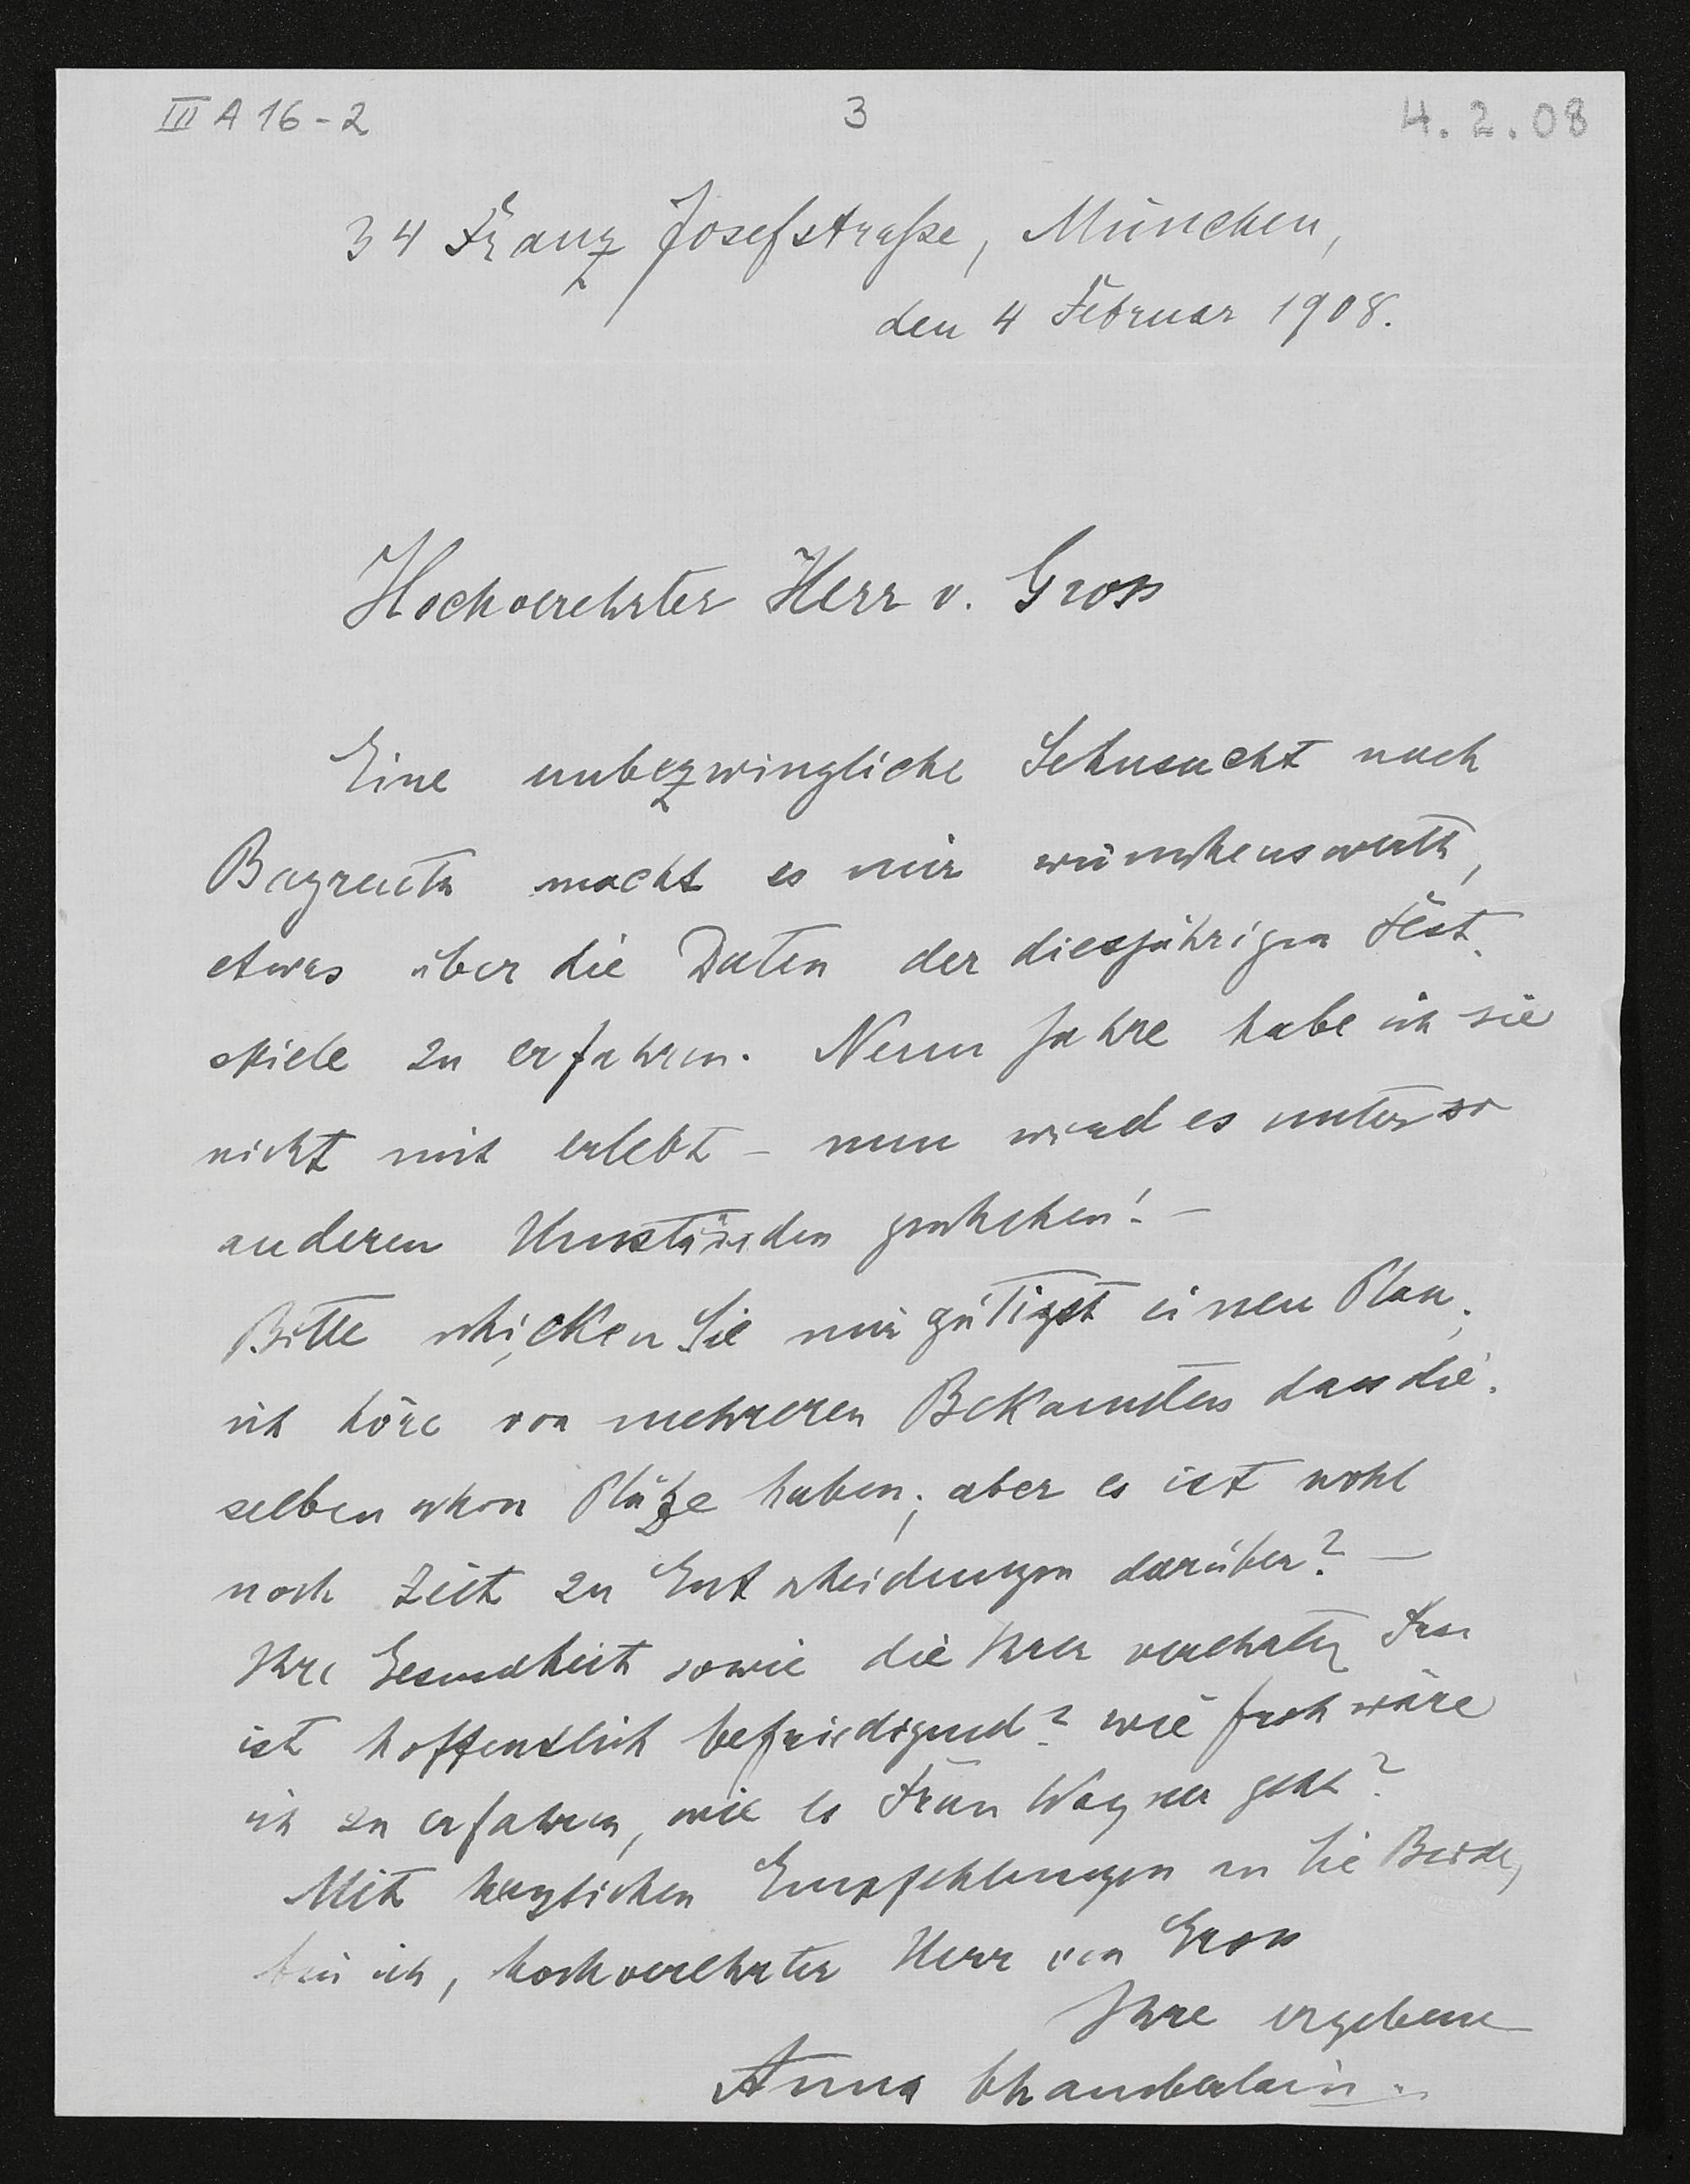 III A 16-2
3
4.2.08
34 Franz Josefstraße, München,
den 4 Februar 1908.
Hochverehrter Herr v. Gross
Eine unbezwingliche Sehnsucht nach
Bayreuth macht es mir wünschenswerth,
etwas über die Daten der diesjährigen Fest-
spiele zu erfahren. Neun Jahre habe ich sie
nicht mit erlebt – nun wird es unter so
anderen Umständen geschehen! –
Bitte schicken Sie mir gütigst einen Plan;
ich höre von mehreren Bekannten dass die-
selben schon Plätze haben; aber es ist wohl
noch Zeit zu Entscheidungen darüber? –
Ihre Gesundheit sowie die Ihrer verehrten Frau
ist hoffentlich befriedigend? wie froh wäre
ich zu erfahren, wie es Frau Wagner geht?
Mit herzlichen Empfehlungen an Sie Beide,
bin ich, hochverehrter Herr von Gross
Ihre ergebene
Anna Chamberlain.